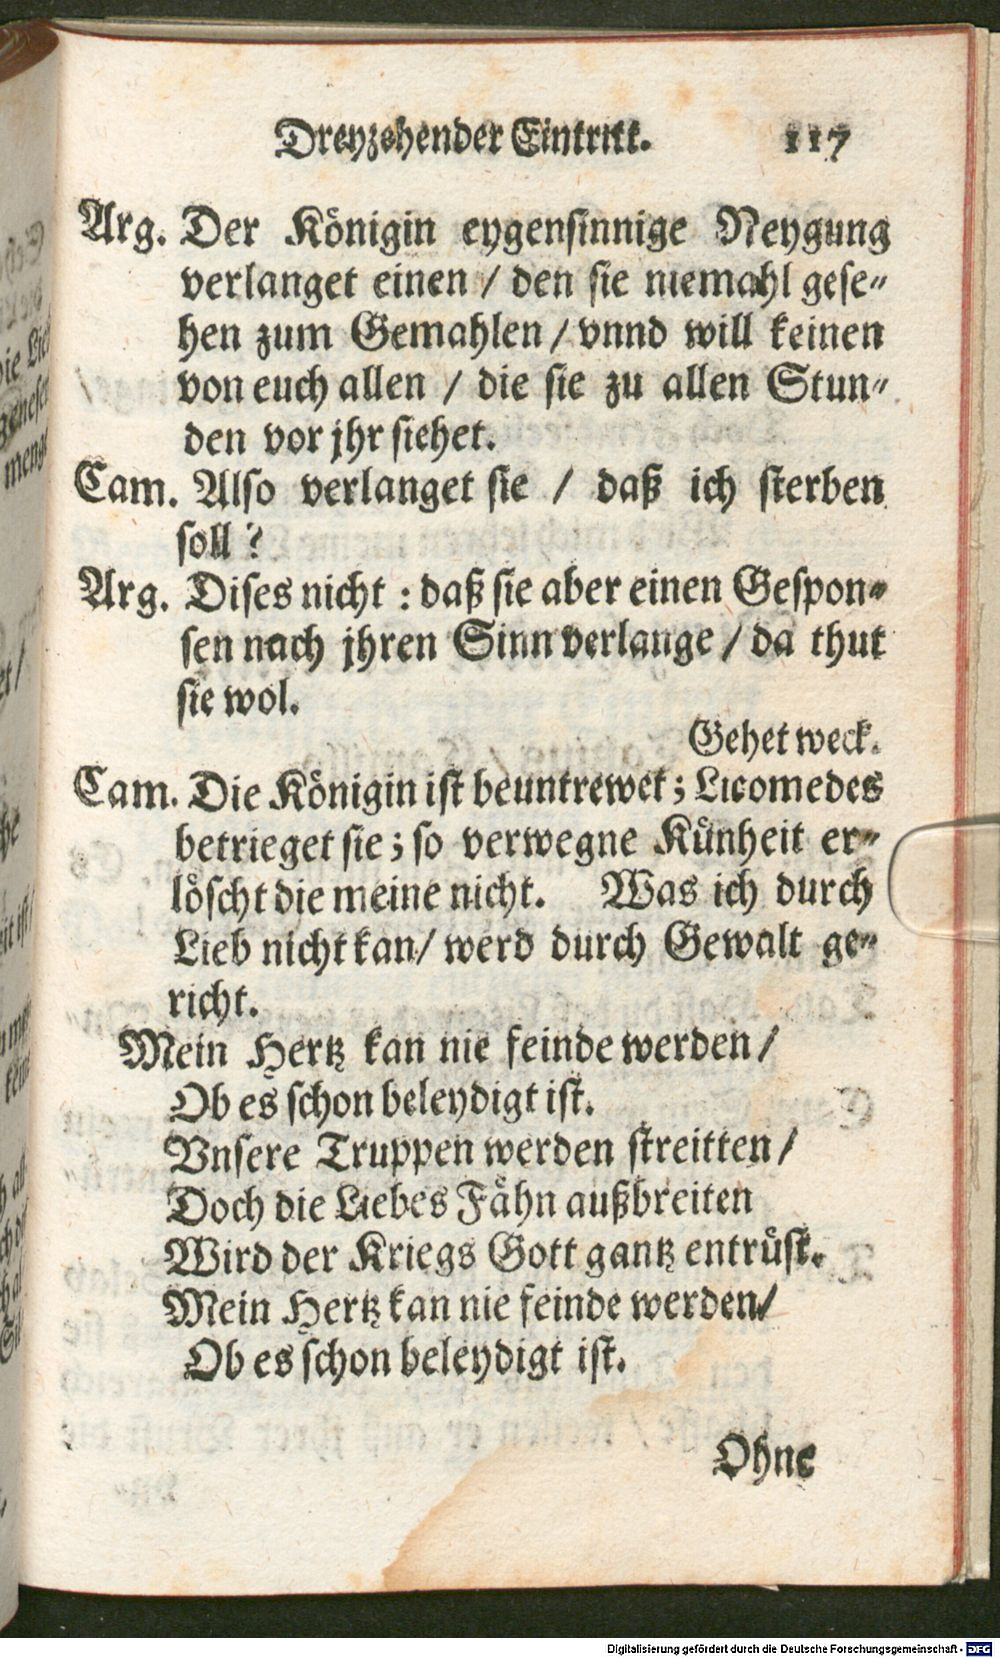 Dreyzehender Eintritt. 117
Arg. Der Königin eygensinnige Neygung
verlanget einen / den sie niemahl gese-
hen zum Gemahlen / vnnd will keinen
von euch allen / die sie zu allen Stun-
den vor jhr siehet.
Cam. Also verlanget sie / daß ich sterben
soll ?
Arg. Dises nicht : daß sie aber einen Gespon-
sen nach jhren Sinn verlange / da thut
sie wol.
Gehet weck.
Cam. Die Königin ist beuntrewet ; Licomedes
betrieget sie ; so verwegne Künheit er-
löscht die meine nicht. Was ich durch
Lieb nicht kan / werd durch Gewalt ge-
richt.
Mein Hertz kan nie feinde werden /
Ob es schon beleydigt ist.
Vnsere Truppen werden streitten /
Doch die Liebes Fähn außbreiten
Wird der Kriegs Gott gantz entrüst.
Mein Hertz kan nie feinde werden /
Ob es schon beleydigt ist.
Ohne
Digitalisierung gefördert durch die Deutsche Forschungsgemeinschaft - DFG